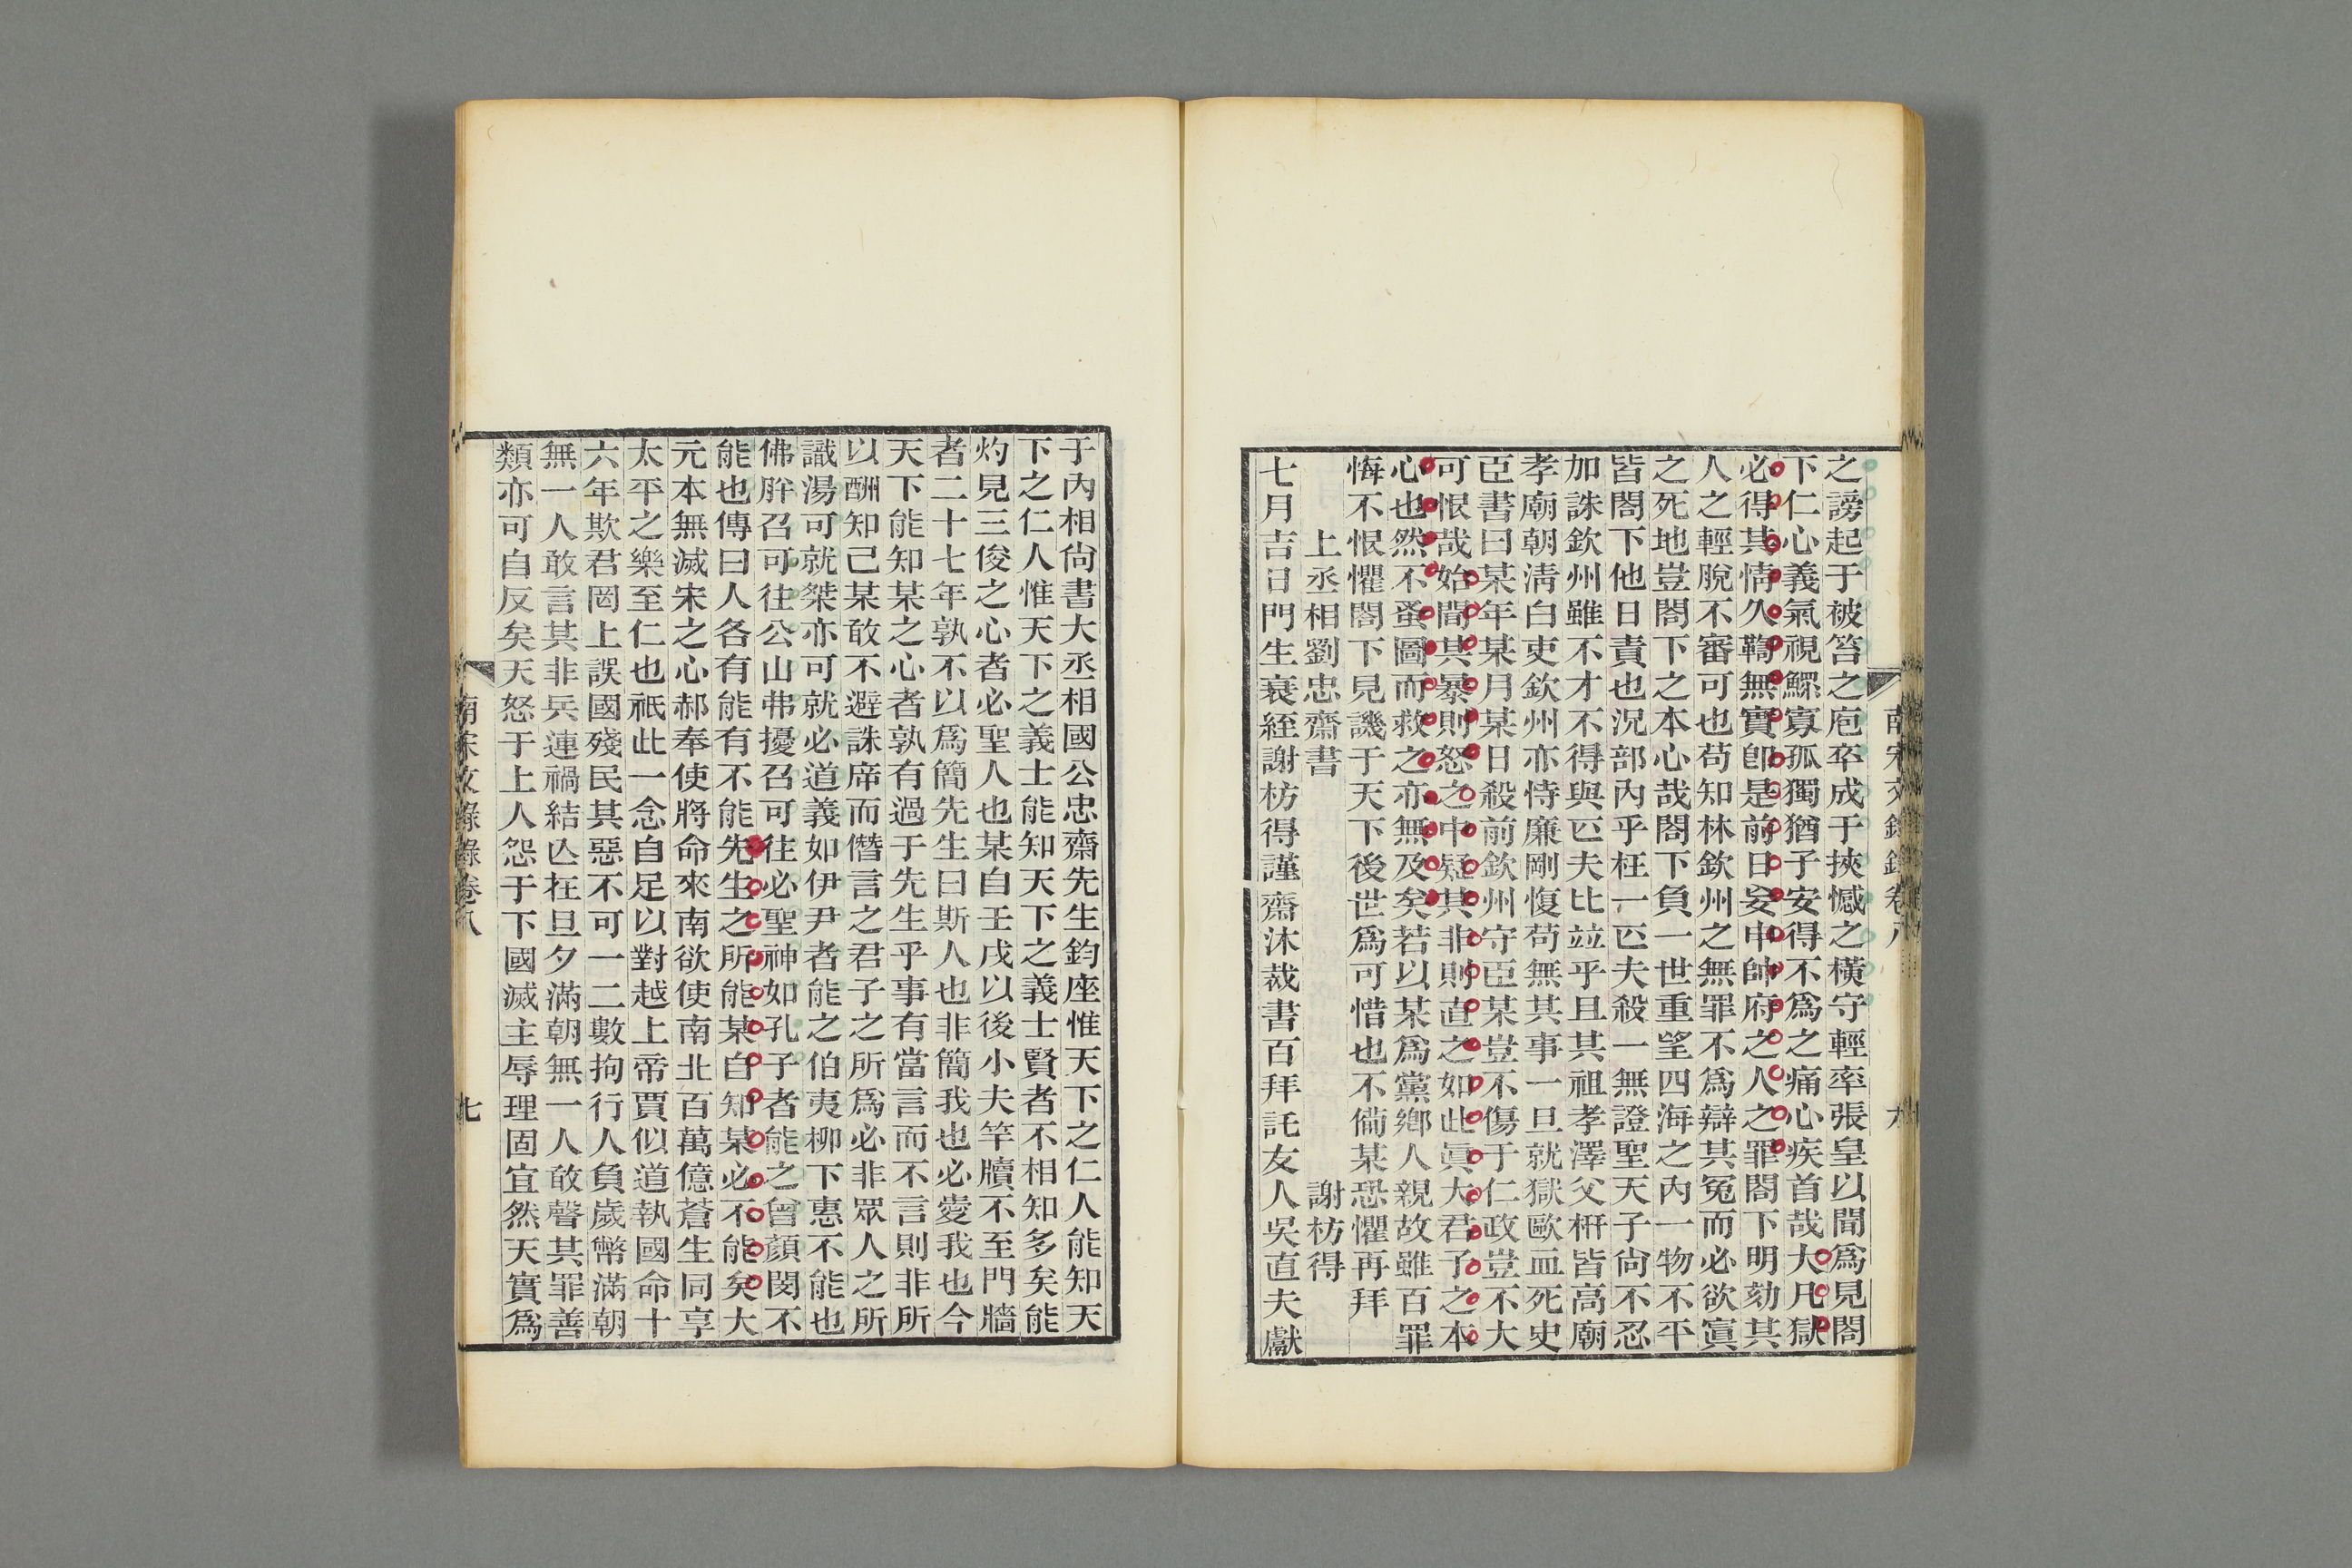 南宋文錄錄卷八
六
之謗起于被笞之庖卒成于挾憾之橫守輕率張皇以聞爲見閤
下仁心義氣視鰥寡孤獨猶子安得不爲之痛心疾首哉大凡獄
必得其情久鞫無實卽是前日妄申帥府之人之罪閤下明劾其
人之輕脫不審可也苟知林欽州之無罪不爲辯其冤而必欲寘
之死地豈閤下之本心哉閤下負一世重望四海之內一物不平
皆閤下他日責也況部內乎枉一匹夫殺一無證聖天子尙不忍
加誅欽州雖不才不得與匹夫比竝乎且其祖孝澤父枅皆高廟
孝廟朝淸白吏欽州亦恃廉剛愎苟無其事一旦就獄歐血死史
臣書曰某年某月某日殺前欽州守臣某豈不傷于仁政豈不大
可恨哉始聞其暴則怒之中疑其非則直之如此眞大君子之本
心也然不蚤圖而救之亦無及矣若以某爲黨鄕人親故雖百罪
悔不恨懼閤下見譏于天下後世爲可惜也不備某恐懼再拜
上丞相劉忠齋書 謝枋得
七月吉日門生衰絰謝枋得謹齋沐裁書百拜託友人吳直夫獻
于內相尙書大丞相國公忠齋先生鈞座惟天下之仁人能知天
下之仁人惟天下之義士能知天下之義士賢者不相知多矣能
灼見三俊之心者必聖人也某自壬戌以後小夫竿牘不至門牆
者二十七年孰不以爲簡先生曰斯人也非簡我也必愛我也今
天下能知某之心者孰有過于先生乎事有當言而不言則非所
以酬知己某敢不避誅席而僭言之君子之所爲必非眾人之所
識湯可就桀亦可就必道義如伊尹者能之伯夷柳下惠不能也
佛肸召可往公山弗擾召可往必聖神如孔子者能之曾顏閔不
能也傳曰人各有能有不能先生之所能某自知某必不能矣大
元本無滅宋之心郝奉使將命來南欲使南北百萬億蒼生同享
太平之樂至仁也祇此一念自足以對越上帝賈似道執國命十
六年欺君罔上誤國殘民其惡不可一二數拘行人負歲幣滿朝
無一人敢言其非兵連禍結亾在旦夕滿朝無一人敢聲其罪善
類亦可自反矣天怒于上人怨于下國滅主辱理固宜然天實爲
南宋文錄錄卷八
七